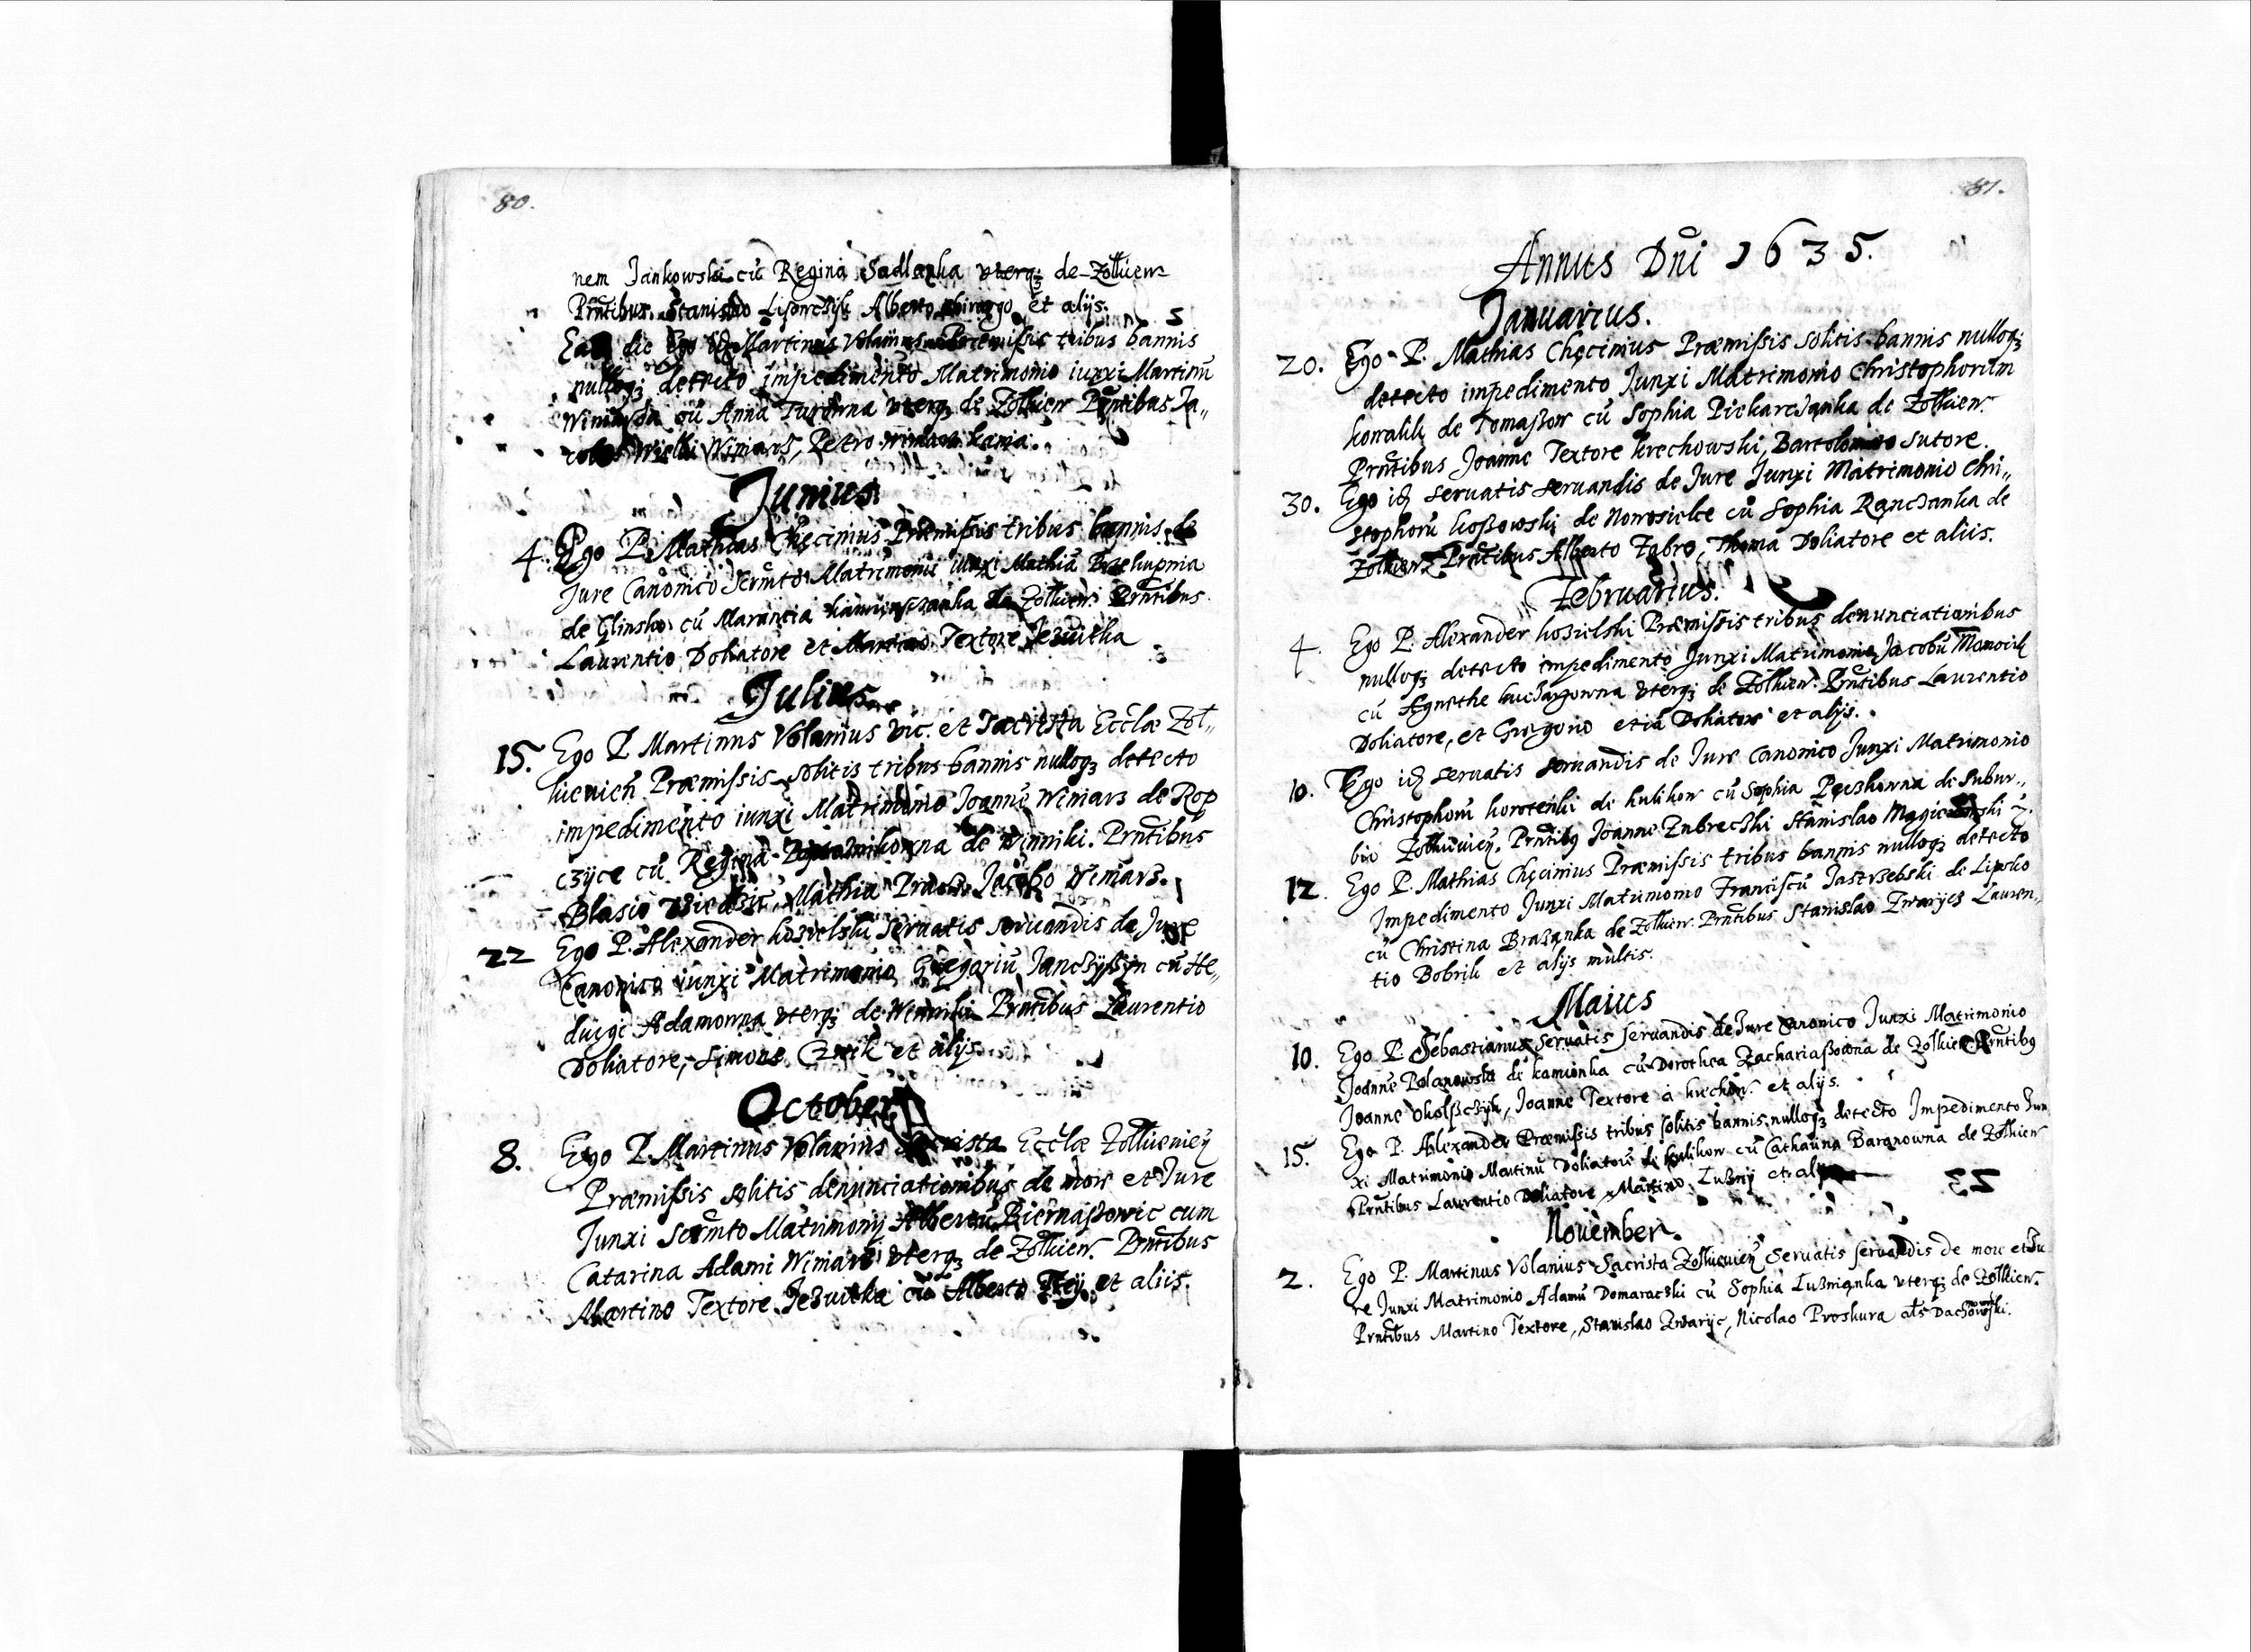 80.
nem Jankowski cũ Regina Sadlanka uterq3 de Zołkiew
Prntibus Stanislao Lisowczyk Alberto Chirurgo et alijs.
die Ego Martinus Volanius Præmissis tribus bannis
nulloq3 detecto impedimento Matrimonio iunxi Martinũ
cũ Anna Turowna uterq3 de Zolkiew Prntibus Ja„
Wielki Winiarz, Petro
Junius
4. Ego P. Mathias Chęcinius Præmissis tribus bannis de
Jure Canonico Scrmto Matrimonii iunxi Mathiã
de Glinsko cũ Maruncia de Zolkiew. Prntibus
Laurentio Doliatore et Martino Textore Jezuitka
Julius
15. Ego P. Martinus Volanius Vic. et Sacrista Eccłæ Zoł„
kievieñ Præmissis solitis tribus bannis nulloq3 detecto
impedimento iunxi Matrimonio Joannẽ Winiarz de Rop
czyce cũ Regina de Winniki. Prntibus
Blasio Mathia Jacobo Winiarz.
22 Ego P. Alexander Kozielski Servatis servandis de Jure
Canonico iunxi Matrimonio Gregoriũ Janczyszyn cũ He„
duigi Adamowna uterq3 de Winniki Prntibus Laurentio
Doliatore, Simone Czwik et alijs
October
8. Ego P. Martinus Volanius Sacrista Eccłæ Zolkievien
Præmissis solitis denunciationibus de more et Jure
Junxi Scrmto Matrimonij Albertũ Biernaszowic cum
Catarina Adami Winiarz uterq3 de Zołkiew. Prntibus
Martino Textore Jezuitka cũ Alberto et aliis.
81.
Annus Dñi 1635.
Januarius.
20. Ego P. Mathias Chęcinius Præmissis solitis bannis nulloq3
detecto impedimento Junxi Matrimonio Christophorum
Kowalik de Tomaszow cũ Sophia Piekarczanka de Zołkiew.
Prntibus Joanne Textore Krechowski, Bartolomeo Sutore.
30. Ego id3 servatis servandis de Jure Junxi Matrimonio Chri„
stophorũ Koszowski de Nowosielce cũ Sophia Ranczanka de
Zolkiew Prntibus Alberto Fabro, Thoma Doliatore et aliis.
Februarius.
4. Ego P. Alexander Kozielski Præmissis tribus denunciationibus
nulloq3 detecto impedimento Junxi Matrimonio Jacobũ
cũ Agnethe uterq3 de Zolkiew. Prntibus Laurentio
Doliatore, et Gregorio etiã Doliatore et alijs.
10. Ego id3 servatis servandis de Jure Canonico Junxi Matrimonio
Christophorũ Korotenki de Kulikow cũ Sophia Pęczkowna de Subur„
bio Zolkievien. Prntib9 Joanne Zubreczki Stanislao
12. Ego P. Mathias Chęcinius Præmissis tribus bannis nulloq3 detecto
Impedimento Junxi Matrimonio Franciscũ Jastrzebski de Lipsko
cũ Christina Brazanka de Zolkiew. Prntibus Stanislao Zwarycz Lauren„
tio Bobrik et alijs multis.
Maius
10. Ego P. Sebastianus Servatis servandis de Jure Canonico Junxi Matrimonio
Joannẽ Polanowski de Kamionka cũ Dorothea Zachariaszowna de Zolkiew Prntib9
Joanne Okolszczyk, Joanne Textore à Krechow. et alijs.
15. Ego P. Alexander Præmissis tribus solitis bannis nulloq3 detecto Impedimento Jun
xi Matrimonio Martinũ Doliatorẽ de Kulikow cũ Catharina Baranowna de Zolkiew
Prntibus Laurentio Doliatore, Martino Luzny et alijs
November.
2. Ego P. Martinus Volanius Sacrista Zolkievien Servatis servandis de more et Ju
re Junxi Matrimonio Adamũ Domaraczki cũ Sophia Luznianka uterq3 de Zolkiew.
Prntibus Martino Textore, Stanislao Zwaryc, Nicolao Proskura als Dachnowski.